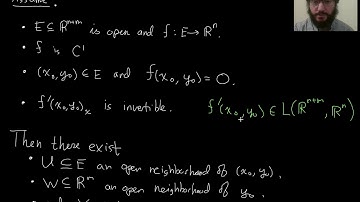 Assume:
• E ⊆ ℝⁿ⁺ᵐ is open and f : E → ℝⁿ.
• f is C'
• (x₀, y₀) ∈ E and f(x₀, y₀) = 0.
• f'(x₀, y₀)ₓ is invertible. f'(x₀, y₀) ∈ L(ℝⁿ⁺ᵐ, ℝⁿ)
Then there exist
• U ⊆ E an open neighborhood of (x₀, y₀).
• W ⊆ ℝᵐ an open neighborhood of y₀.